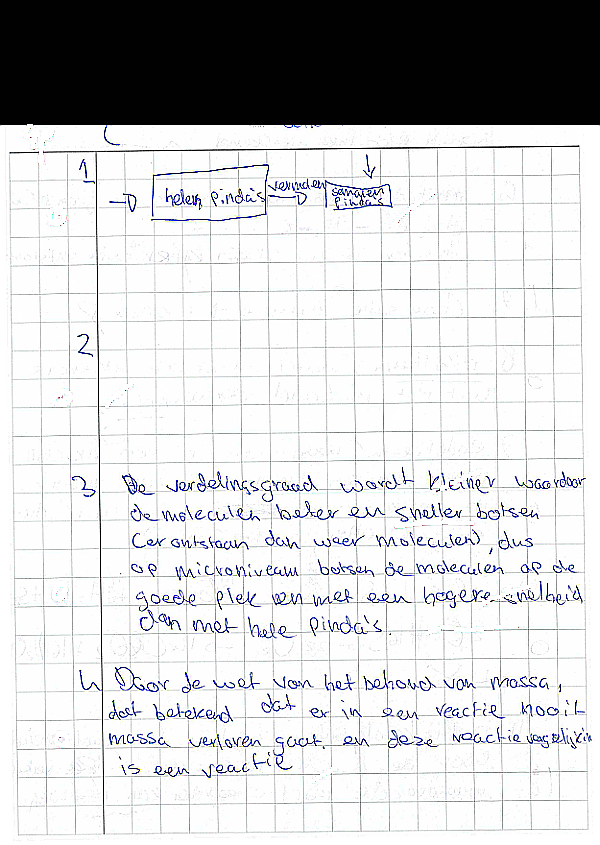 1
helen pinda's vermalen gemalen
pinda's
2
3 De verdelingsgraad wordt kleiner waardoor
de moleculen beter en sneller botsen
(er ontstaan dan weer moleculen), dus
op microniveau botsen de moleculen op de
goede plek en met een hogere snelheid
dan met hele pinda's.
4 Door de wet van het behoud van massa,
dat betekend dat er in een reactie nooit
massa verloren gaat. en deze reactievergelijkin
is een reactie